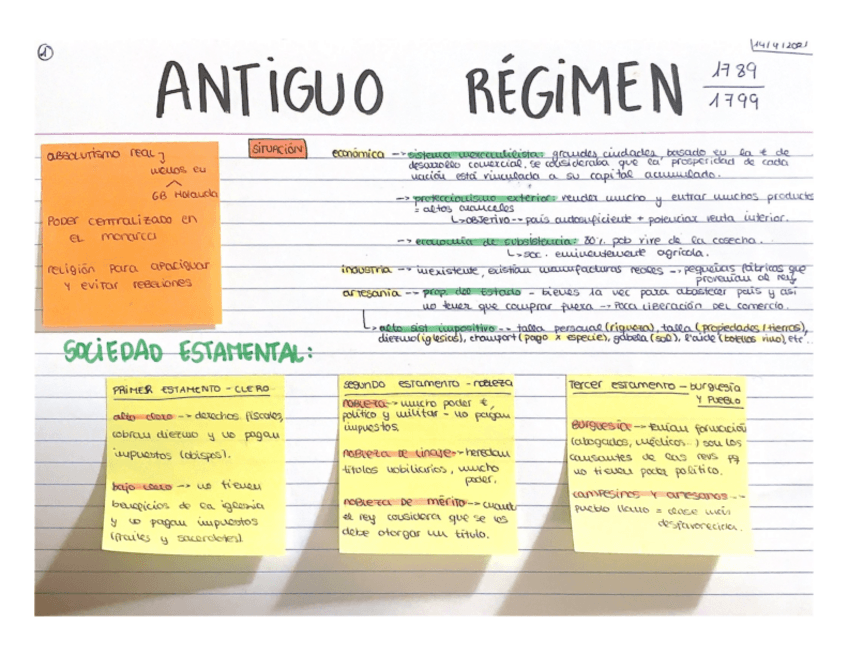 1
14/4/2021
ANTIGUO RÉGIMEN 1789
1799
ABSOLUTISMO REAL
menos en
GB Holanda
Poder centralizado en
el monarca
religión para apaciguar
y evitar rebeliones
SITUACIÓN
económica -> sistema mercantilista: grandes ciudades basado en la t de
desarrollo comercial, se consideraba que la prosperidad de cada
nación está vinculada a su capital acumulado.
-> proteccionismo exterior: vender mucho y entrar muchos productos
= altos aranceles
↳ objetivo -> país autosuficiente + potenciar venta interior.
-> economía de subsistencia: 80% pob vive de la cosecha.
↳ soc. eminentemente agrícola.
industria -> inexistente, existían manufacturas reales -> pequeñas fábricas que
provenían del rey
artesanía -> prop. del Estado - bienes la vec para abastecer país y así
no tener que comprar fuera -> Poca liberación del comercio.
↳ alto sist impositivo -> talla personal (riqueza), talla (propiedades/tierras),
diezmo (iglesias), champart (pago x especie), gabela (sal), l'aide (botellas vino), etc..
SOCIEDAD ESTAMENTAL:
PRIMER ESTAMENTO - CLERO
alto clero -> derechos fiscales,
cobran diezmo y no pagan
impuestos (obispos).
bajo clero -> no tienen
beneficios de la iglesia
y no pagan impuestos
(frailes y sacerdotes)
Segundo estamento - nobleza
nobleza -> mucho poder
político y militar - no pagan
impuestos.
nobleza de linaje -> heredan
títulos nobiliarios, mucho
poder.
nobleza de mérito -> cuando
el rey considera que se les
debe otorgar un título.
Tercer estamento - burguesía
y pueblo
Burguesía -> tenían formación
(abogados, médicos..) son los
causantes de las revs pq
no tienen poder político.
campesinos y artesanos ->
pueblo llano = clase más
desfavorecida.